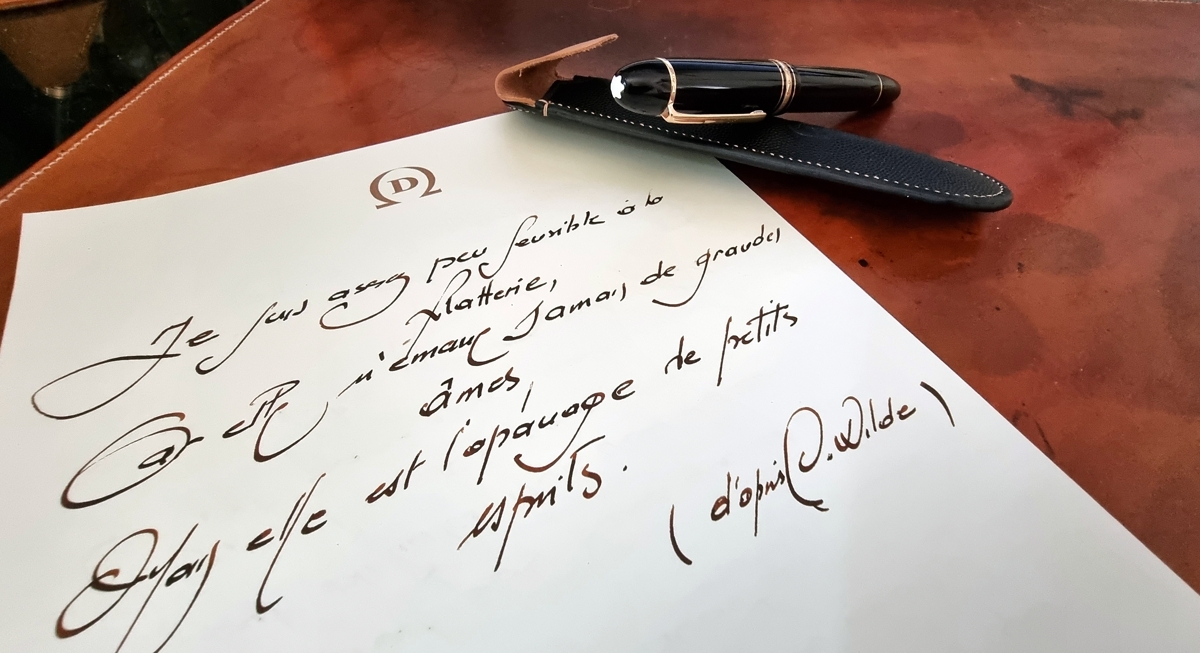 D
Je suis assez peu sensible à la
flatterie,
Car elle n'émane jamais de grandes
âmes,
Mais elle est l'apanage de petits
esprits.
(d'après O. Wilde)